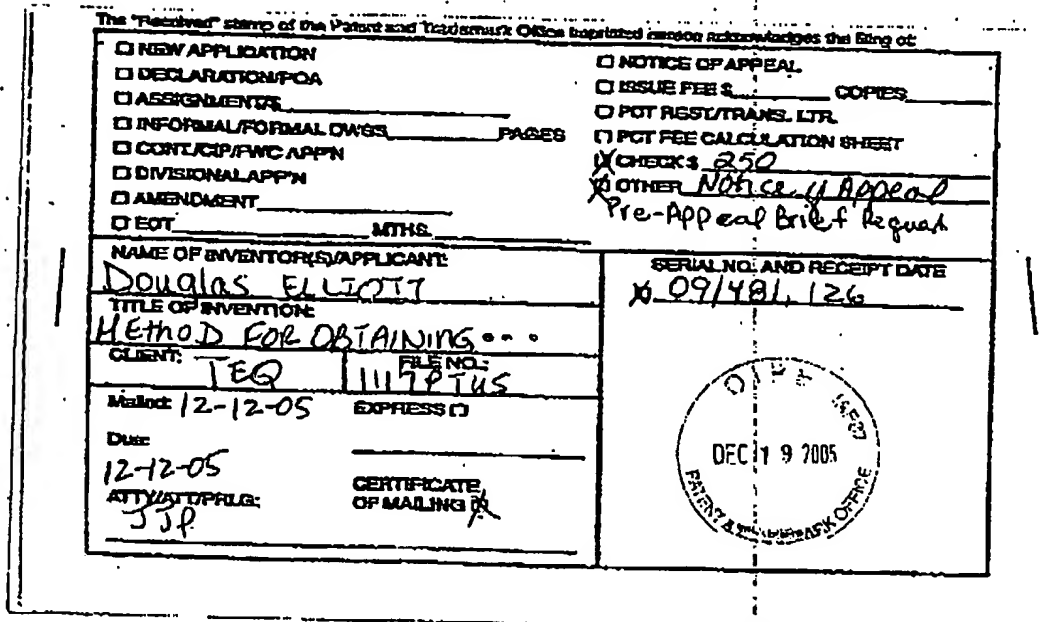 The "Received" stamp of the Patent and Trademark Office imprinted hereon acknowledges the filing of:
☐ NEW APPLICATION
☐ DECLARATION/POA
☐ ASSIGNMENT/S
☐ INFORMAL/FORMAL DWGS PAGES
☐ CONT/CIP/FWC APP'N
☐ DIVISIONAL APP'N
☐ AMENDMENT
☐ EOT MTHS.
☐ NOTICE OF APPEAL
☐ ISSUE FEE $ COPIES
☐ PCT RQST/TRANS. LTR.
☐ PCT FEE CALCULATION SHEET
☒ CHECK $ 250
☒ OTHER Notice of Appeal
Pre-Appeal Brief Request
NAME OF INVENTOR(S)/APPLICANT:
Douglas ELLIOTT
TITLE OF INVENTION:
METHOD FOR OBTAINING...
CLIENT: TEQ
FILE NO.: 1117PTUS
Mailed: 12-12-05 EXPRESS ☐
Due:
12-12-05
ATTY/ATT/PRLG:
JJP
CERTIFICATE
OF MAILING ☒
SERIAL NO. AND RECEIPT DATE
09/481,126
OIPE
DEC 19 2005
PATENT & TRADEMARK OFFICE